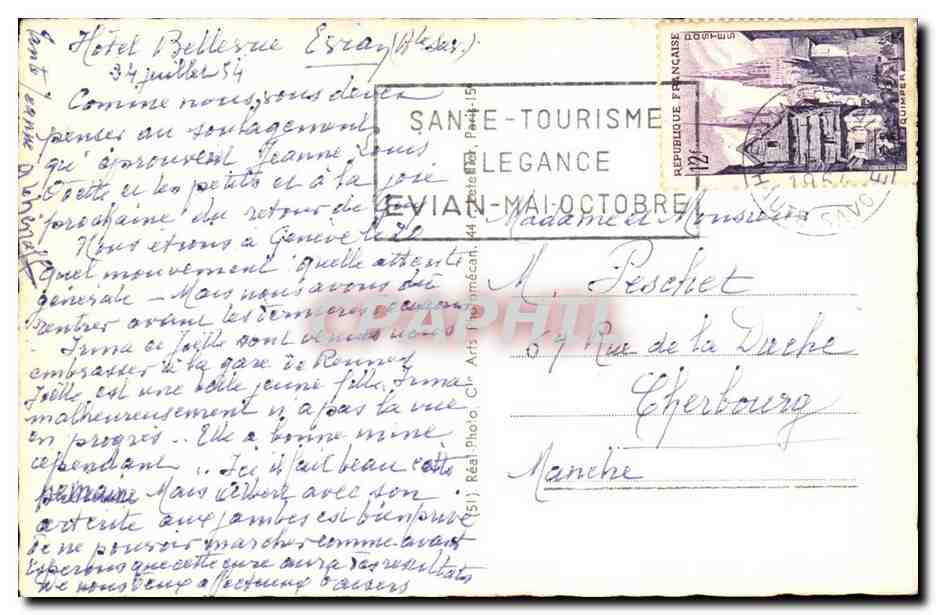 Hôtel Bellevue Evian (Hte Sav.)
juillet 54
Comme nous devez
penser au soulagement
qu'éprouvent Jeanne Louis
Odette et les petits et à la joie
prochaine du retour de
Nous étions à Genève le 20
quel mouvement quelle attente
générale – Mais nous avons dû
rentrer avant les dernières
Irma et Joëlle sont venues nous
embrasser à la gare de Rennes
Joëlle est une belle jeune fille. Irma
malheureusement n'a pas la vue
en progrès .. Elle a bonne mine
cependant .. Ici il fait beau cette
semaine Mais Albert avec son
artérite aux jambes est bien privé
de ne pouvoir marcher comme avant
Espérons que cette cure aura des résultats
De nous deux affectueux baisers
SANTE-TOURISME
ELEGANCE
EVIAN-MAI-OCTOBRE
REPUBLIQUE FRANÇAISE
POSTES
12f
QUIMPER
HTE SAVOIE
(51) Réal-Photo, Cie Arts Photomécan. 44 Paris-15
CPAPHIL
Madame et Monsieur
M. Peschet
67 Rue de la Duché
Cherbourg
Manche